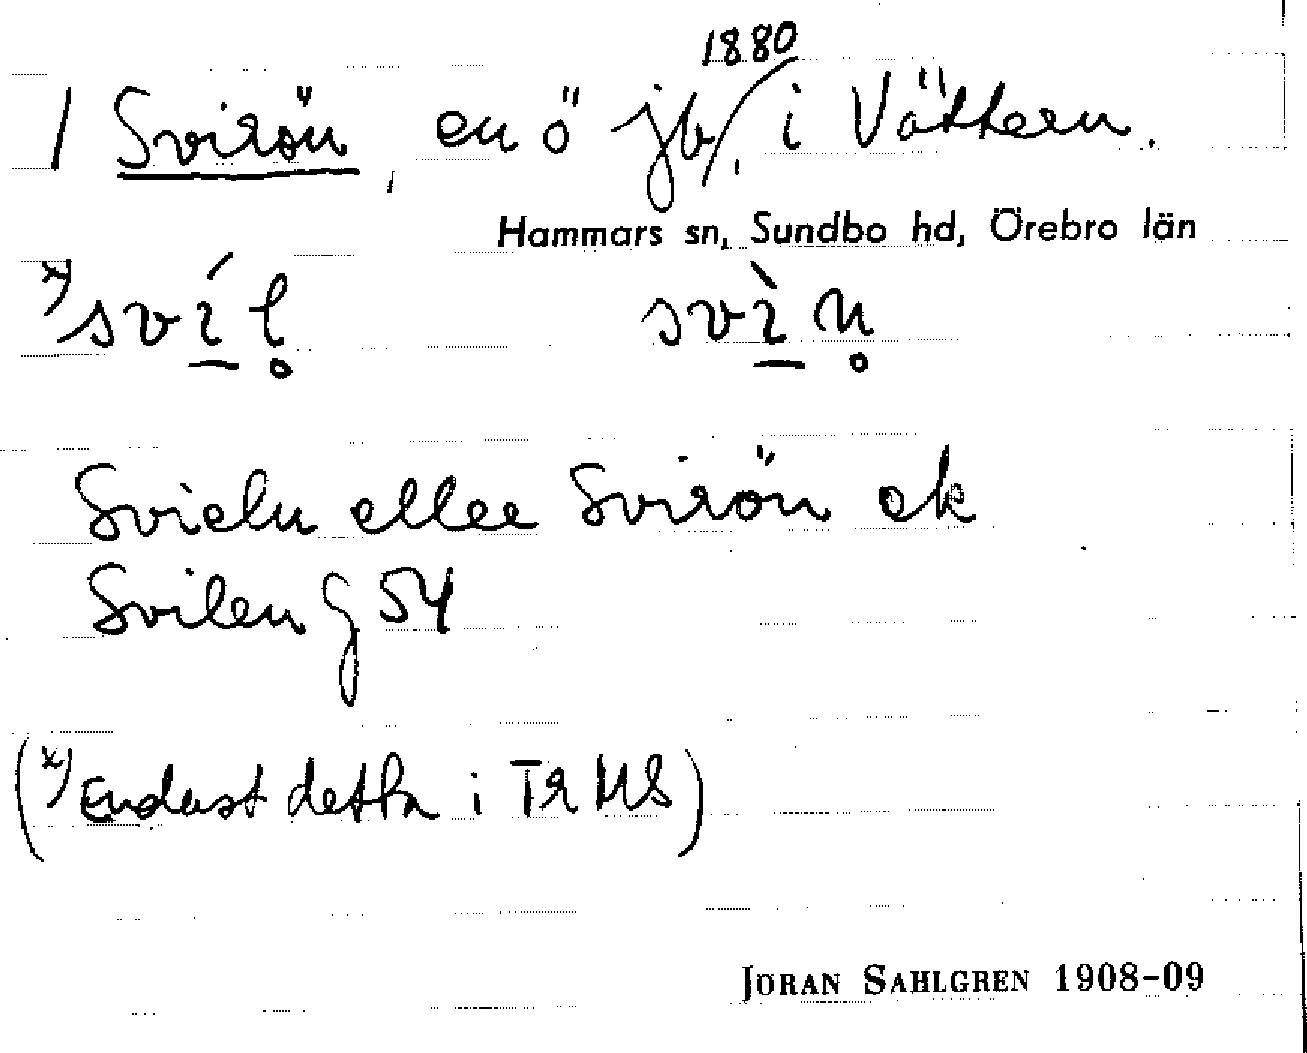 1880
/ Svirön, en ö jb/, i Vättern.
Hammars sn, Sundbo hd, Örebro län
x) sví̱l̥ svì̱n̥
Svieln eller Svirön ek
Svilen G 54
(x) Endast detta i TR MS)
JÖRAN SAHLGREN 1908-09